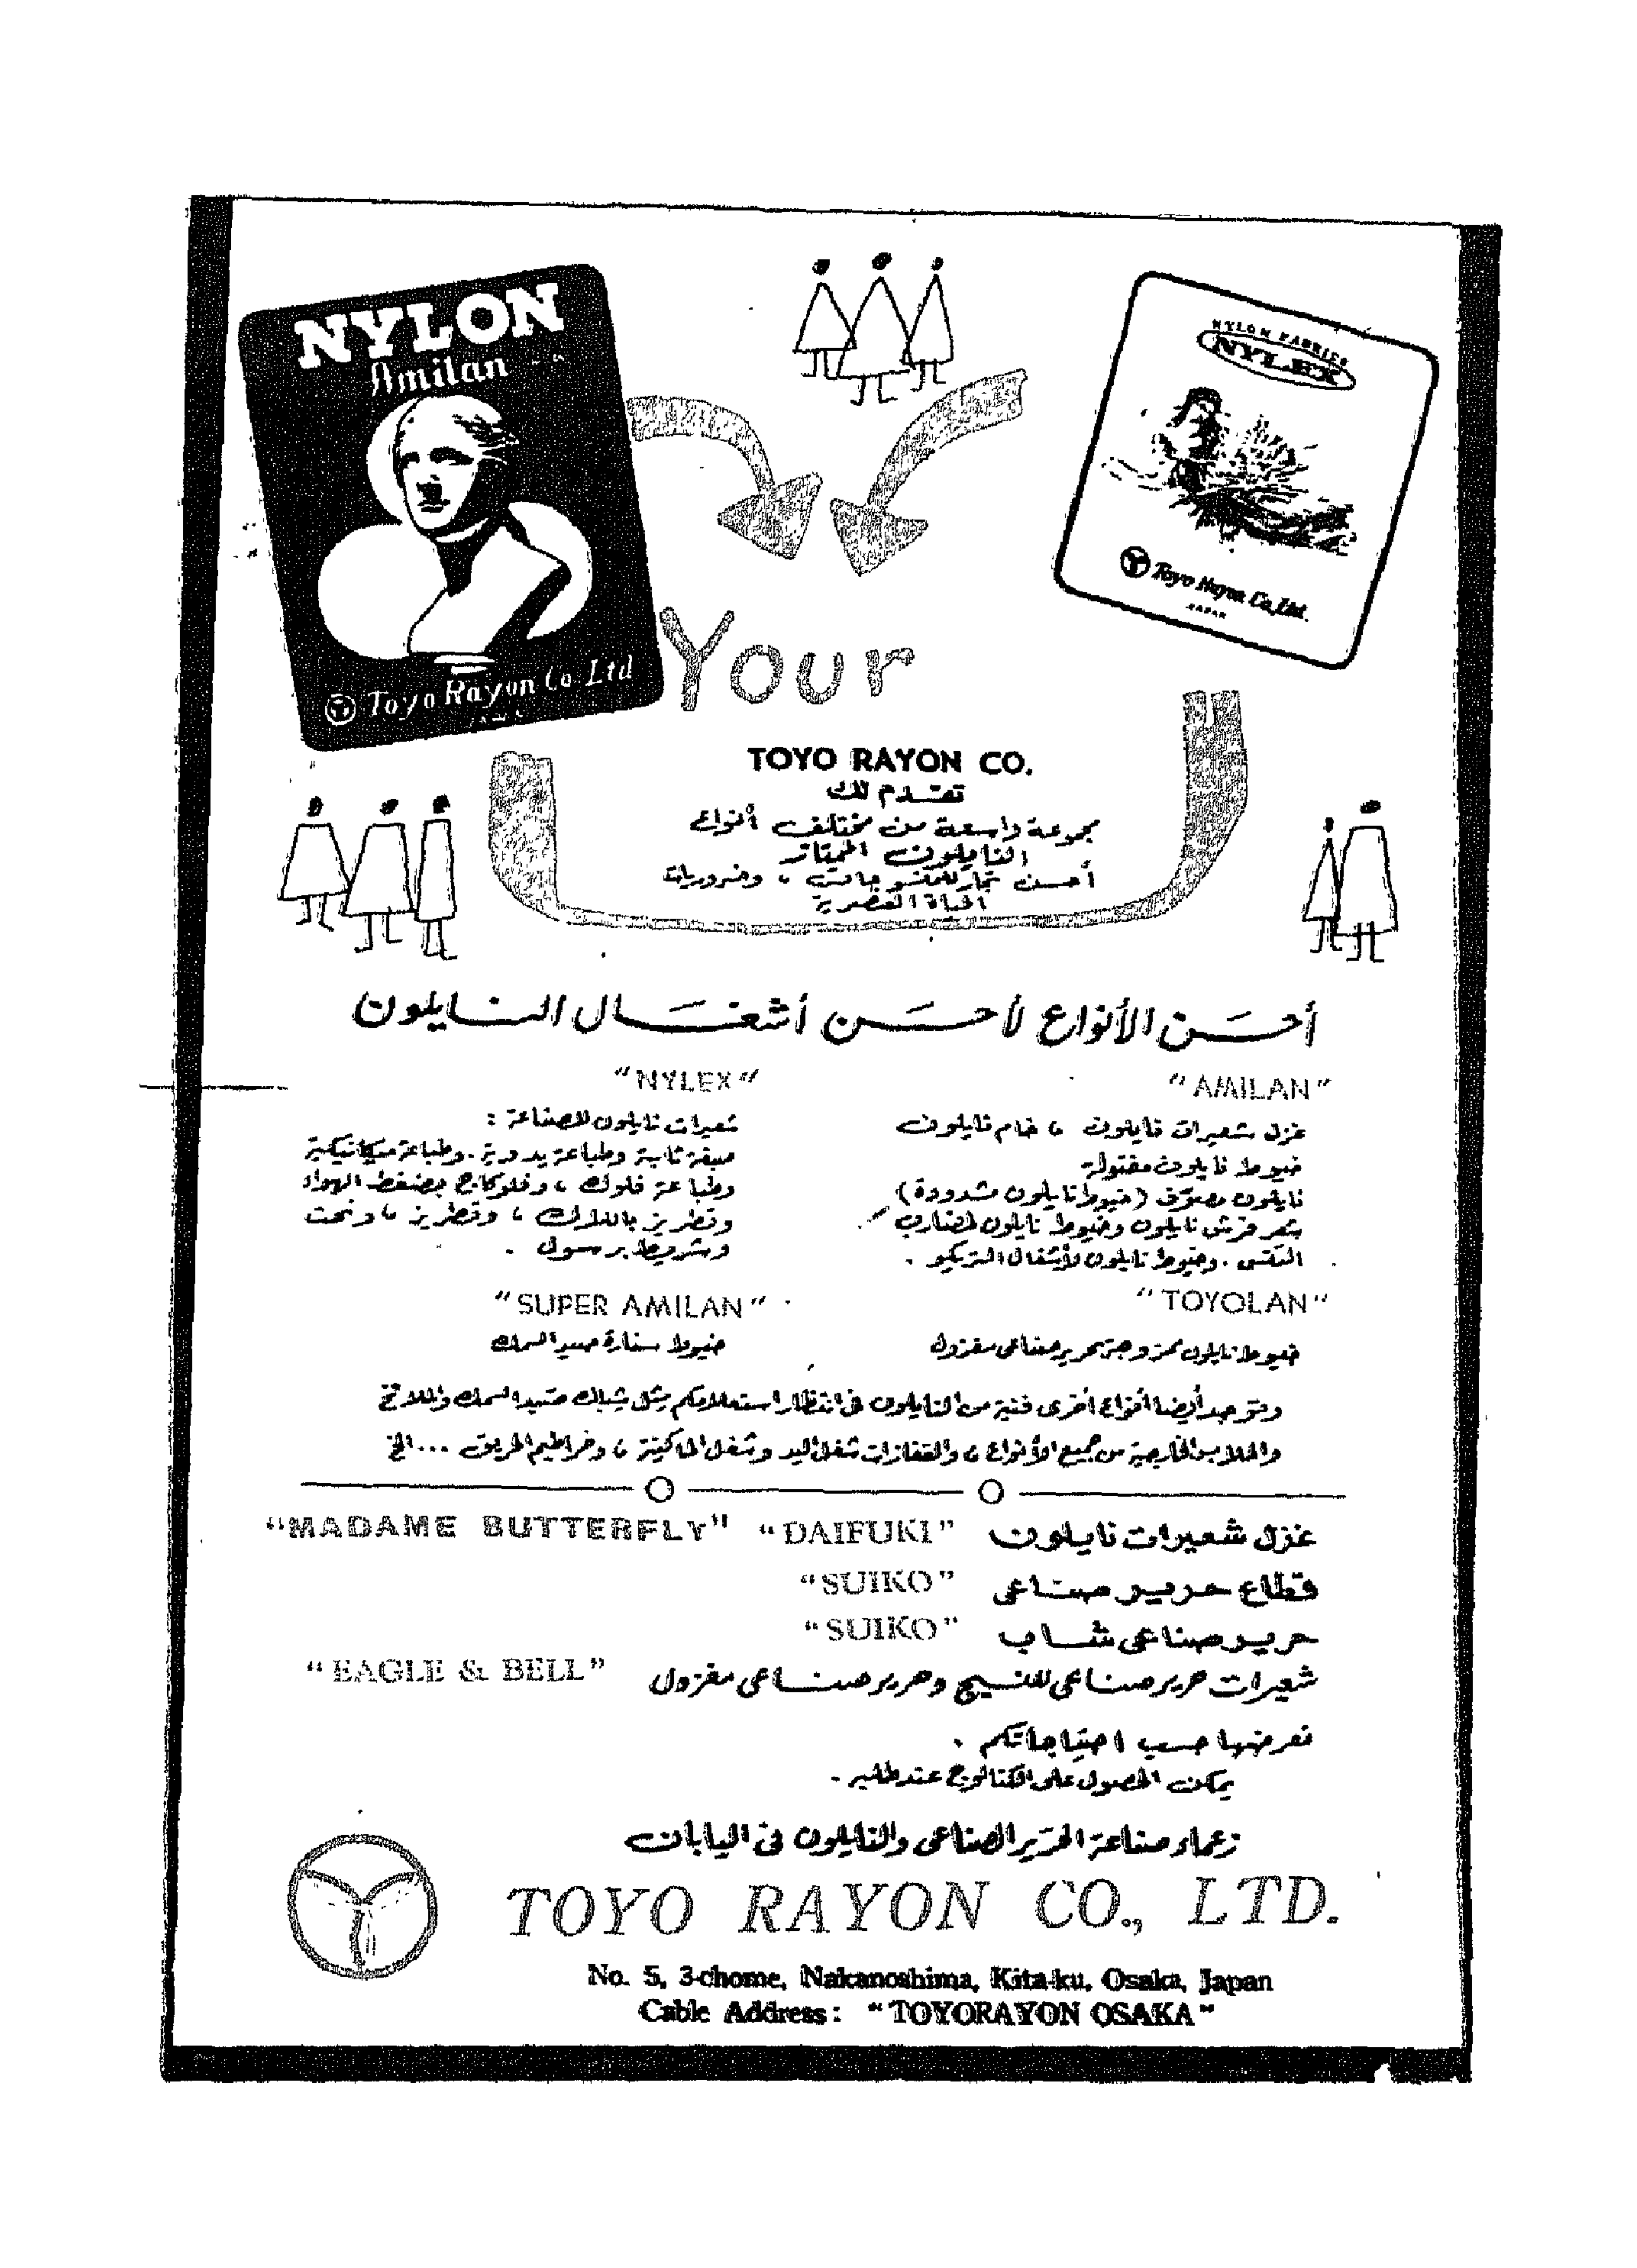 NYLON
Amilan
Toyo Rayon Co. Ltd
NYLON FABRICS
NYLEX
Toyo Rayon Co., Ltd.
JAPAN
Your
TOYO RAYON CO.
تقدم لك
مجموعة واسعة من مختلف أنواع
النايلون الممتاز
أحسن تجار للمنسوجات ، وضروريات
الحياة العصرية
أحسن الأنواع لأحسن أشغال النايلون
"AMILAN"
غزل شعيرات نايلون ، خام نايلون
خيوط نايلون مفتولة
نايلون ممزق (خيوط نايلون مشدودة)
شعر فرش نايلون وخيوط نايلون لمضارب
التنس . وخيوط نايلون لأشغال التريكو .
"NYLEX"
شعيرات نايلون للصناعة :
صبغة ثابتة وطباعة يدوية . وطباعة ميكانيكية
وطباعة فلوك ، وفلوكاج بضغط الهواء
وتطريز بالدلاك ، وتطريز ، ونحت
وشريط برسول .
"TOYOLAN"
خيوط نايلون ممزوجة بحرير صناعى مغزول
"SUPER AMILAN"
خيوط سنارة صيد السمك
ويوجد أيضا أنواع أخرى فنية من النايلون فى انتظار استعلامكم مثل شباك صيد السمك والملاتخ
والملابس الخارجية من جميع الأنواع ، والقفازات شغل اليد وشغل الماكينة ، وخراطيم الحريق ... الخ
غزل شعيرات نايلون "DAIFUKI" "MADAME BUTTERFLY"
قطاع حرير صناعى "SUIKO"
حرير صناعى شاب "SUIKO"
شعيرات حرير صناعى للنسيج وحرير صناعى مغزول "EAGLE & BELL"
نعرضها حسب احتياجاتكم .
يمكن الحصول على الكتالوج عند طلبه .
زعماء صناعة الحرير الصناعى والنايلون فى اليابان
TOYO RAYON CO., LTD.
No. 5, 3-chome, Nakanoshima, Kita-ku, Osaka, Japan
Cable Address: "TOYORAYON OSAKA"